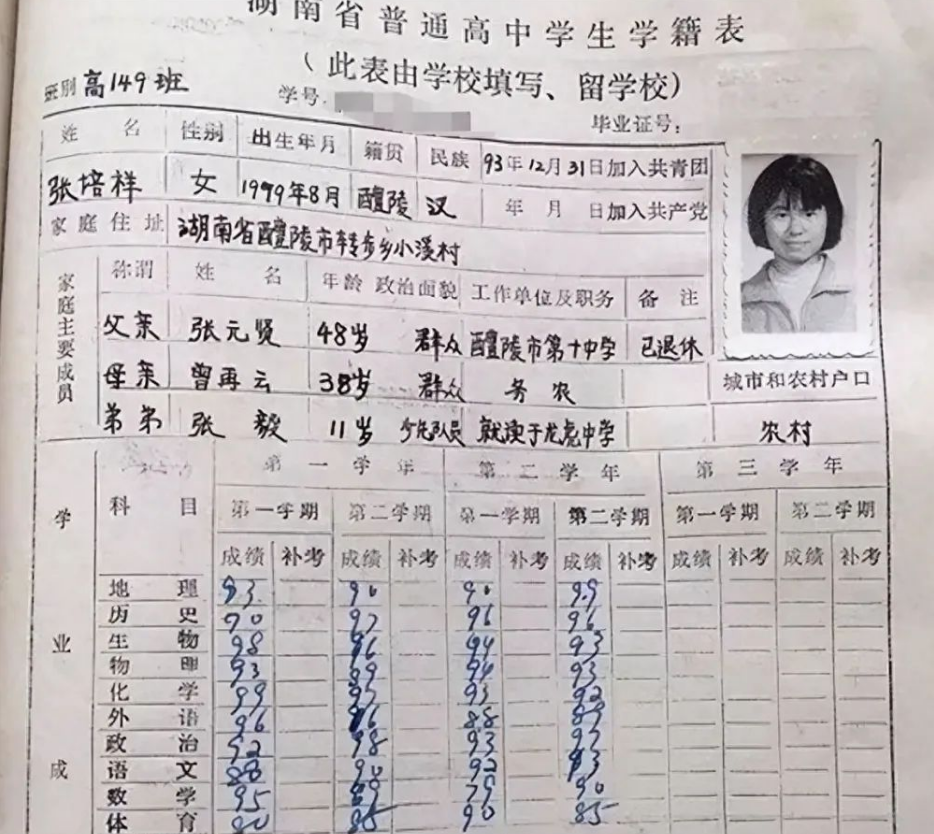 湖南省普通高中学生学籍表
（此表由学校填写、留学校）
班别 高149班 学号 毕业证号：
姓名 性别 出生年月 籍贯 民族 93年12月31日加入共青团
张培祥 女 1979年8月 醴陵 汉 年 月 日加入共产党
家庭住址 湖南省醴陵市转步乡小溪村
家庭主要成员 称谓 姓名 年龄 政治面貌 工作单位及职务 备注
父亲 张元贤 48岁 群众 醴陵市第十中学 已退休
母亲 曾再云 38岁 群众 务农
弟弟 张毅 11岁 少先队员 就读于龙虎中学
城市和农村户口
农村
学业成
科目 第一学年 第二学年 第三学年
第一学期 第二学期 第一学期 第二学期 第一学期 第二学期
成绩 补考 成绩 补考 成绩 补考 成绩 补考 成绩 补考 成绩 补考
地理 93 90 90 99
历史 90 97 96 96
生物 98 96 94 93
物理 93 89 94 93
化学 99 97 93 92
外语 96 96 88 89
政治 92 98 93 97
语文 88 90 92 93
数学 95 79 90
体育 80 85 90 85